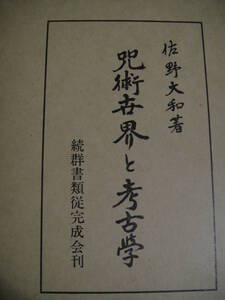 佐野大和著
呪術世界と考古学
続群書類従完成会刊